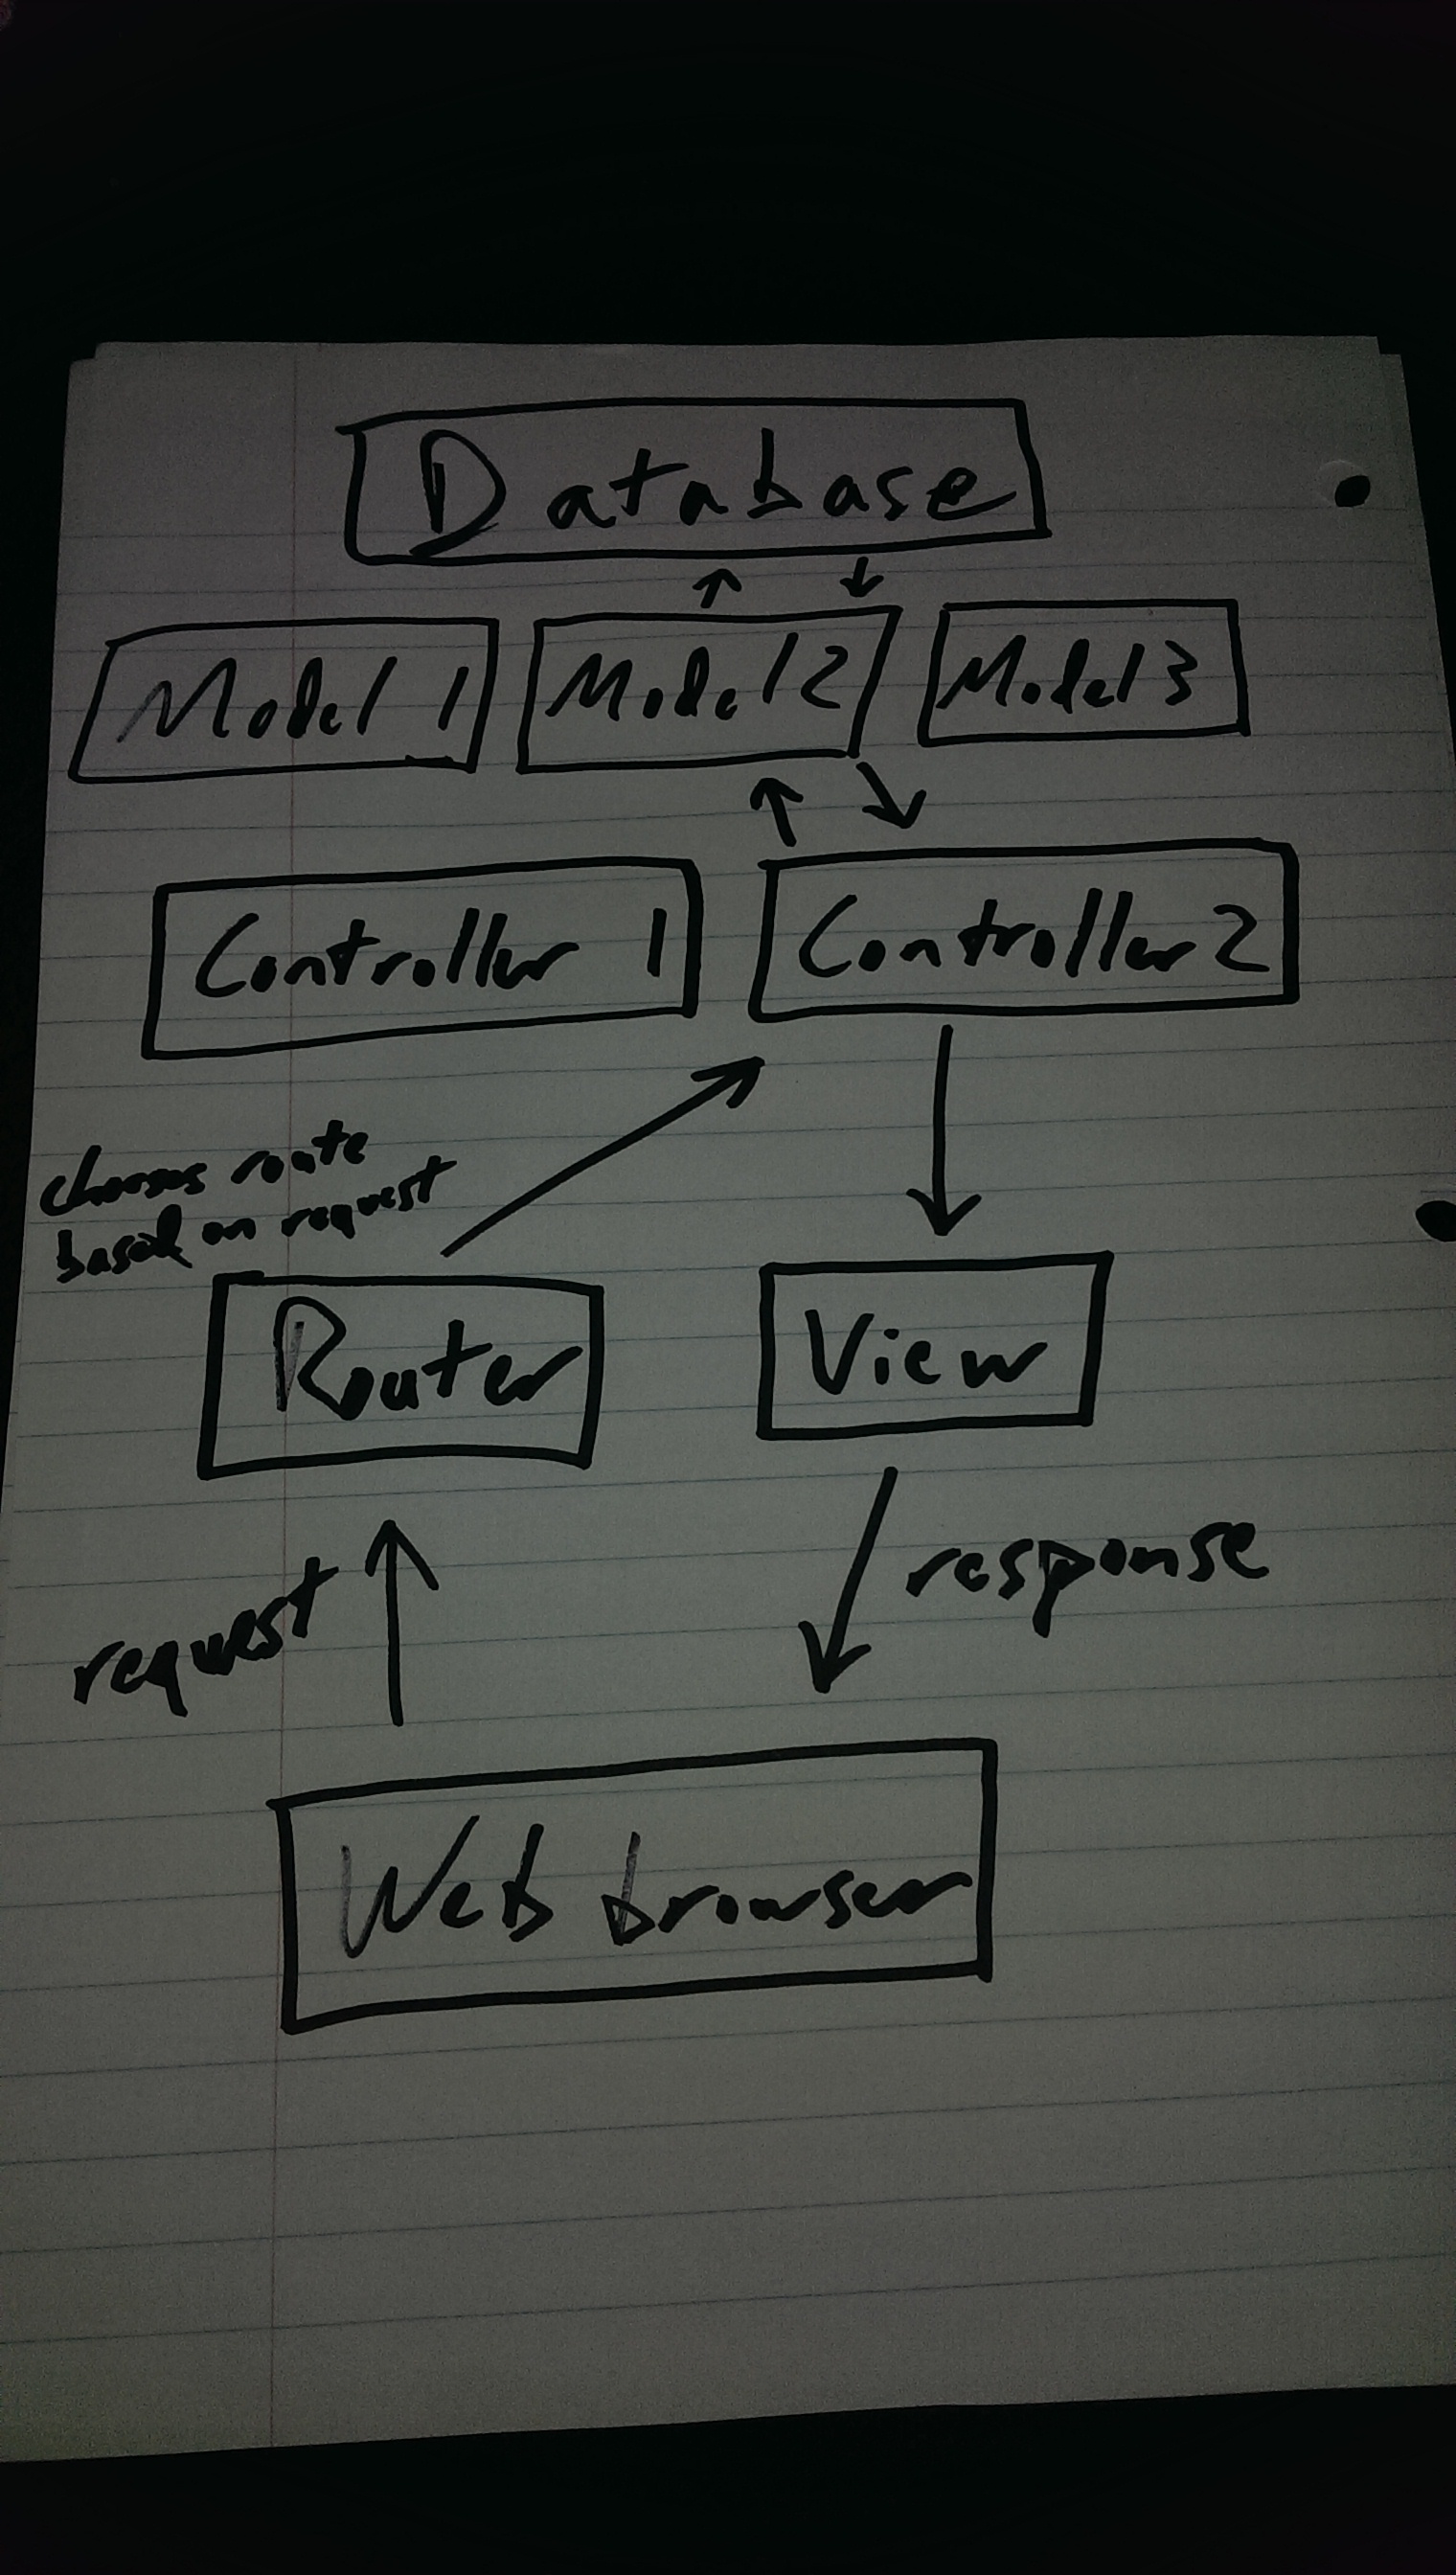 Database
Model 1
Model 2
Model 3
Controller 1
Controller 2
chooses route
based on request
Router
View
request
response
Web browser